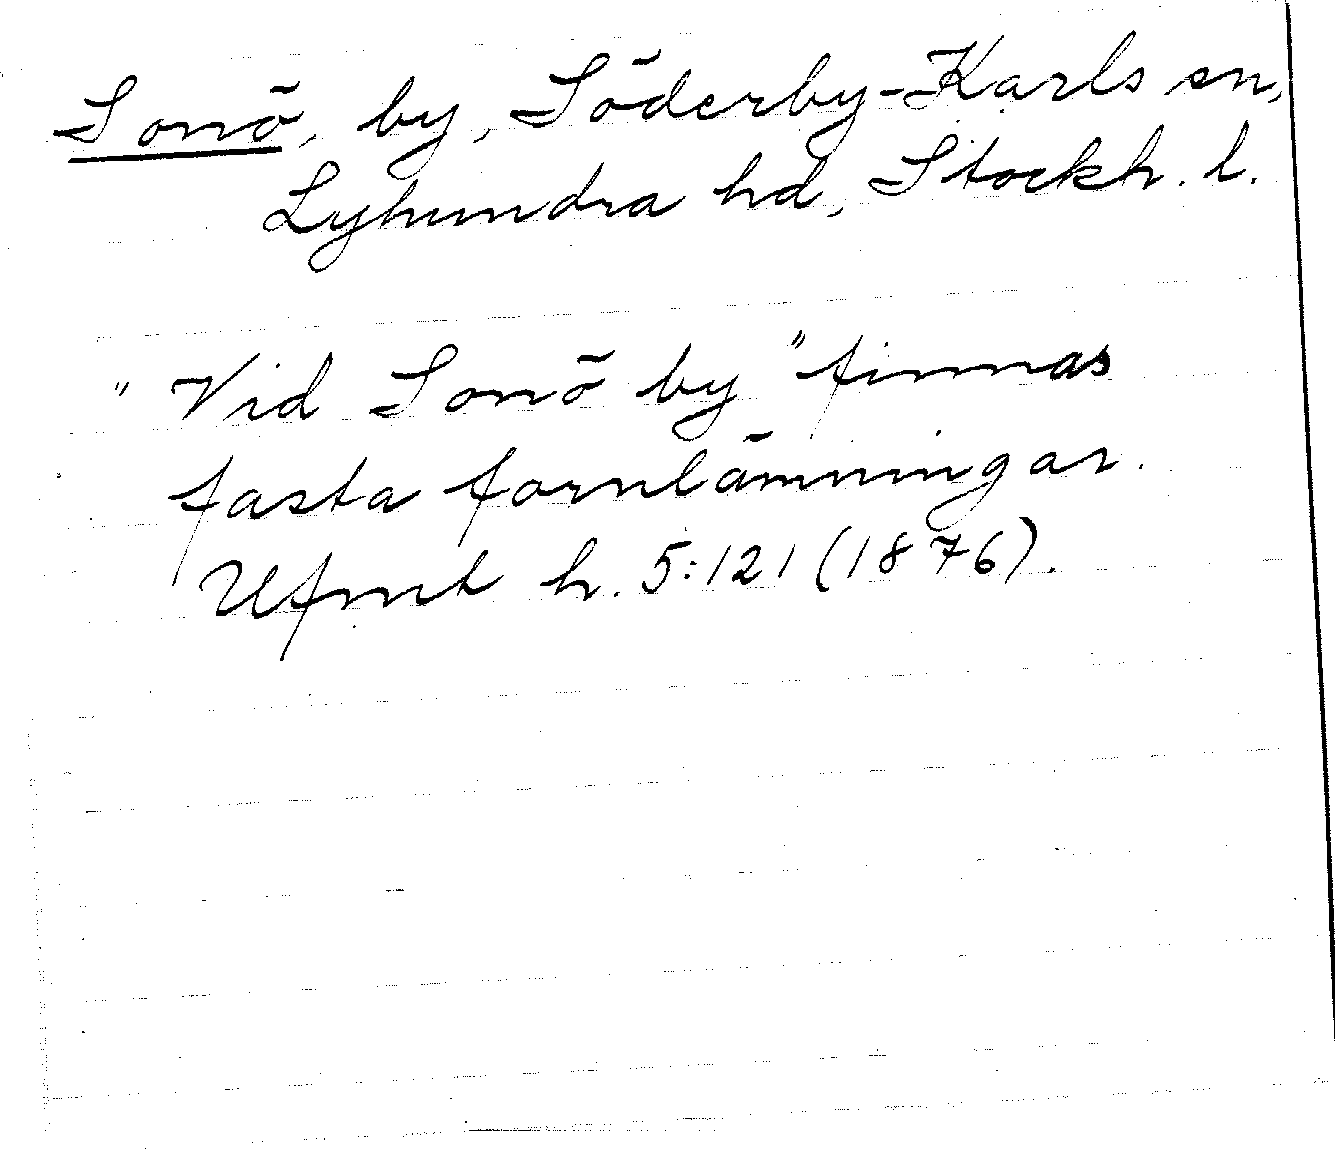 Sonö, by, Söderby-Karls sn,
Lyhundra hd, Stockh. l.
" Vid Sonö by " finnas
fasta fornlämningar.
Ufmt h. 5:121 (1876).